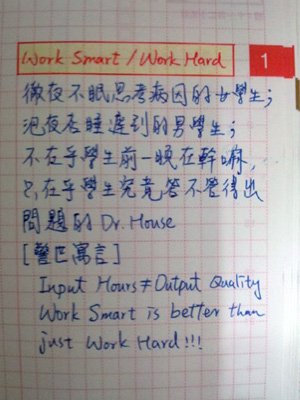 Work Smart / Work Hard
1
徹夜不眠思考病因的女學生;
泡夜店睡遲到的男學生;
不在乎學生前一晚在幹嘛,
只在乎學生究竟答不答得出
問題的 Dr. House
[寓言]
Input Hours ≠ Output Quality
Work Smart is better than
just Work Hard!!!